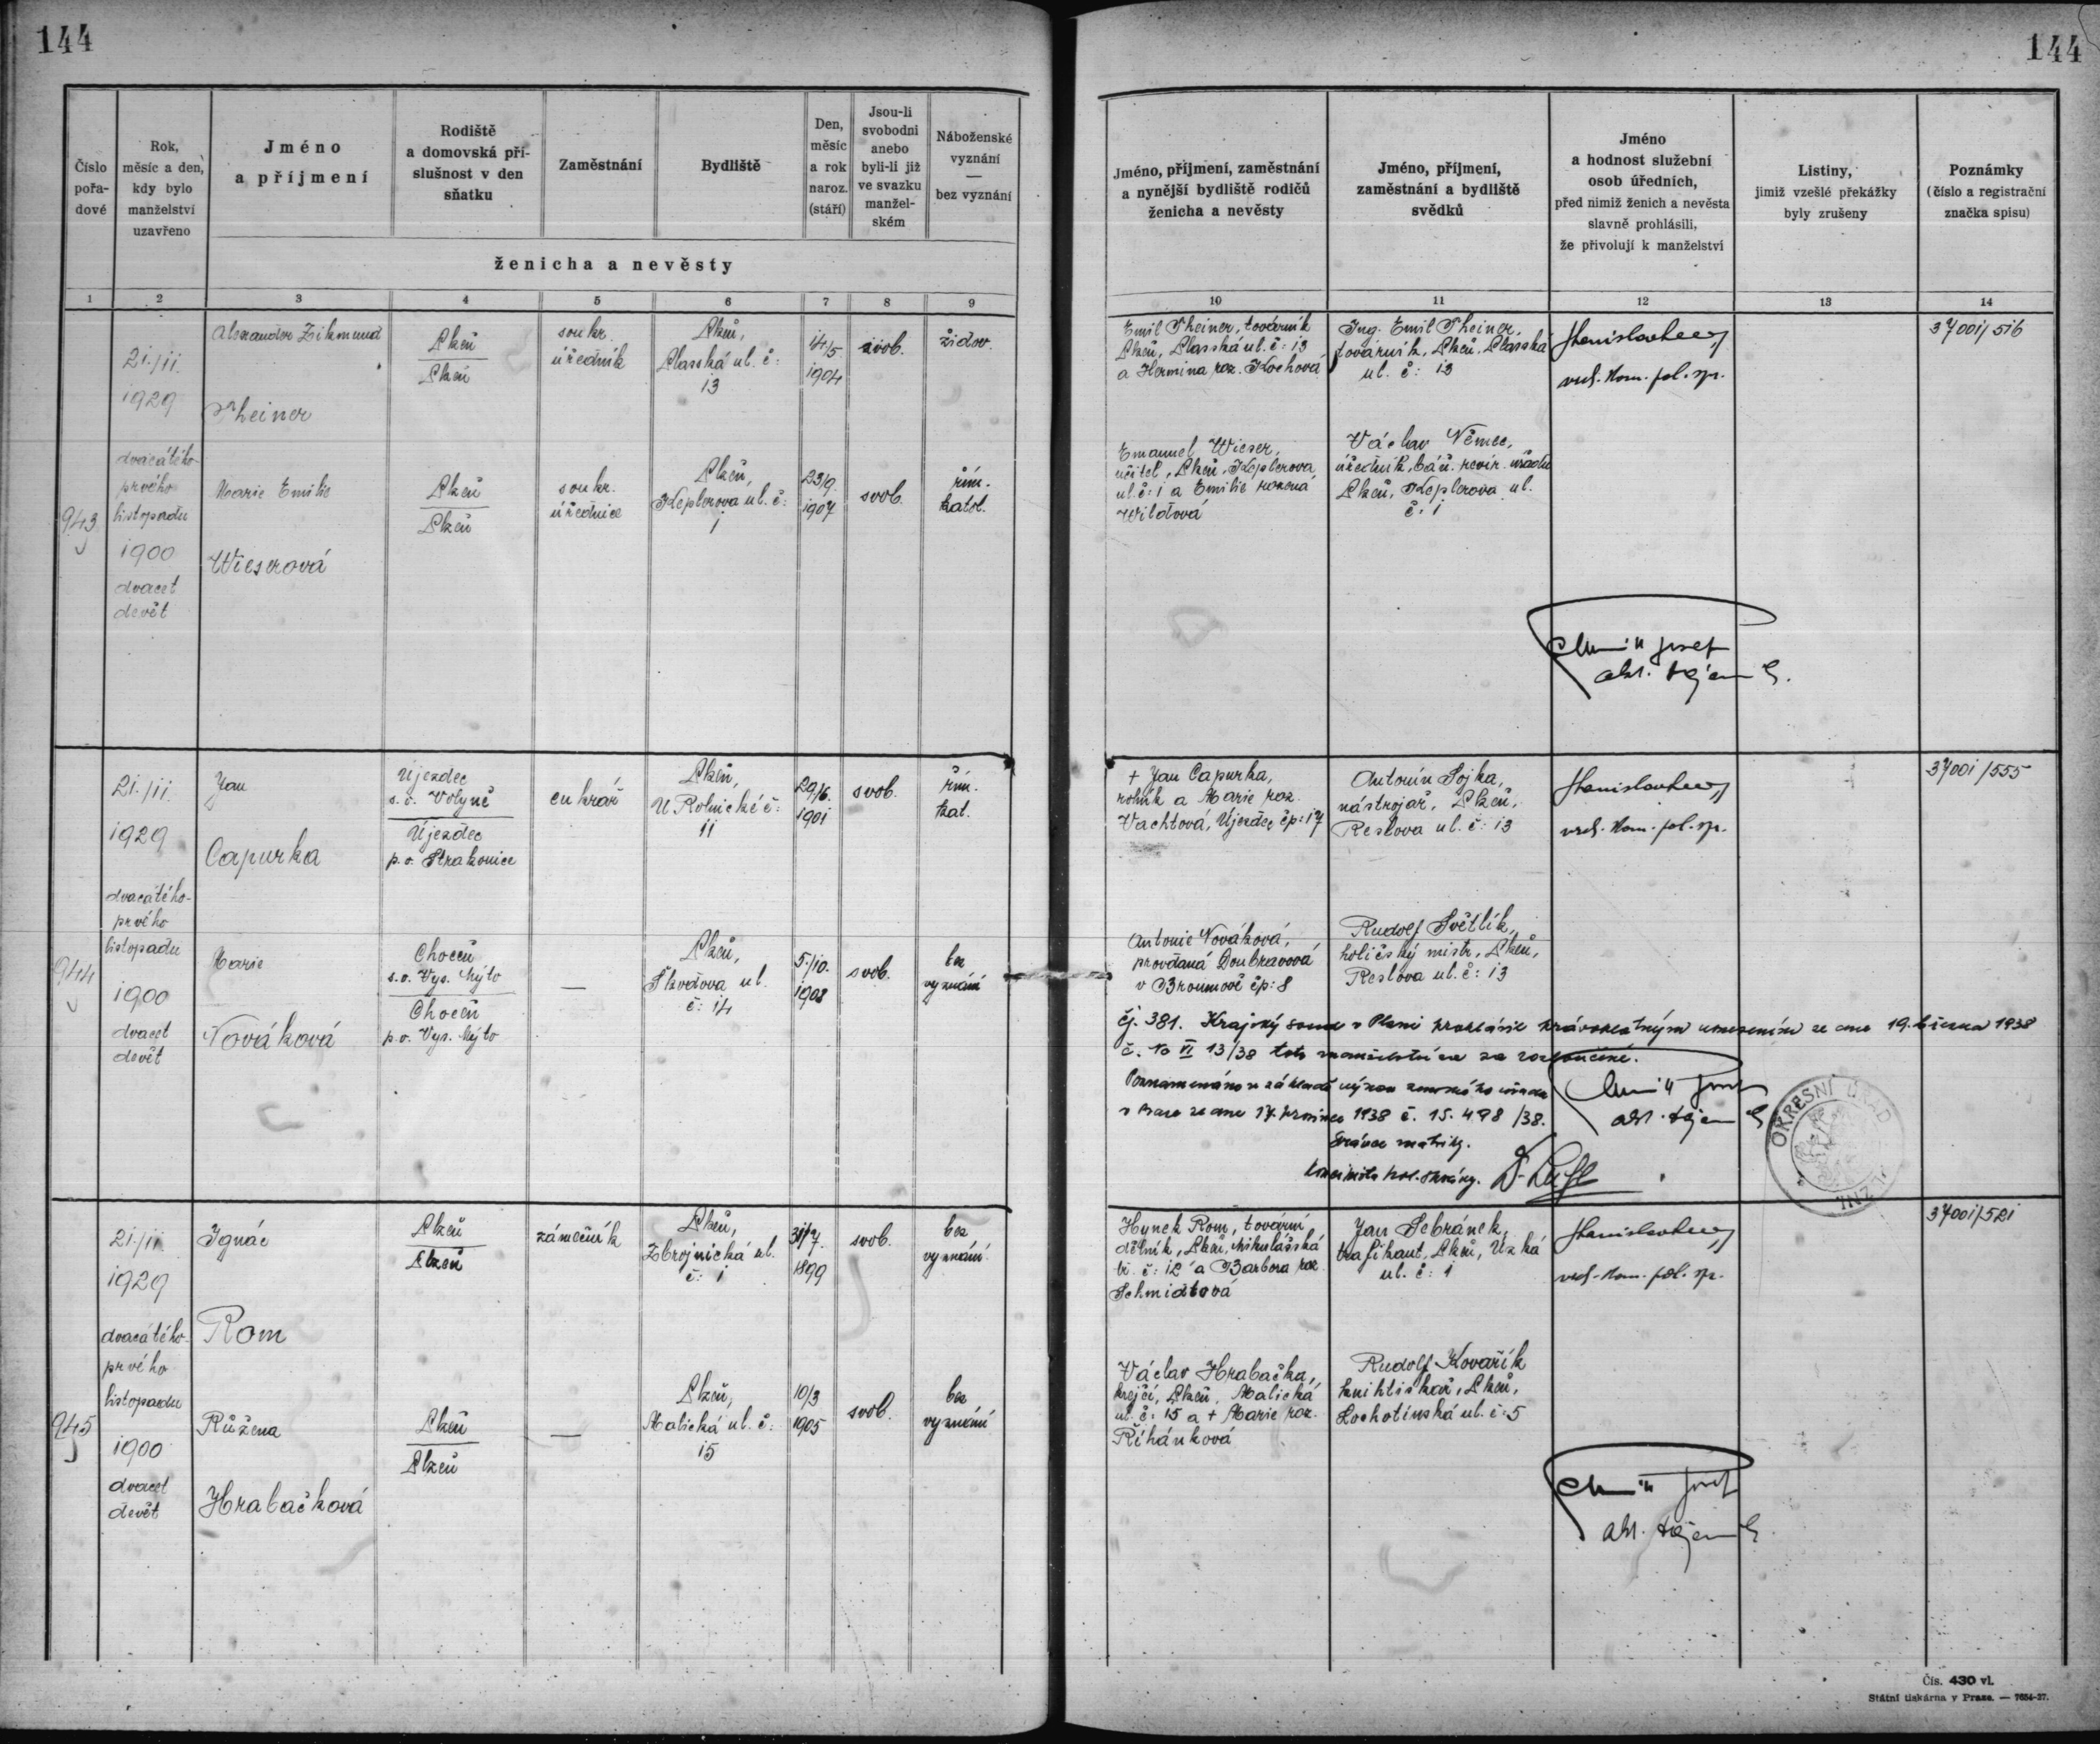 144
144
Číslo
pořa-
dové
Rok,
měsíc a den,
kdy bylo
manželství
uzavřeno
Jméno
a příjmení
Rodiště
a domovská pří-
slušnost v den
sňatku
Zaměstnání
Bydliště
Den,
měsíc
a rok
naroz.
(stáří)
Jsou-li
svobodni
anebo
byli-li již
ve svazku
manžel-
ském
Náboženské
vyznání
—
bez vyznání
ženicha a nevěsty
Jméno, příjmení, zaměstnání
a nynější bydliště rodičů
ženicha a nevěsty
Jméno, příjmení,
zaměstnání a bydliště
svědků
Jméno
a hodnost služební
osob úředních,
před nimiž ženich a nevěsta
slavně prohlásili,
že přivolují k manželství
Listiny,
jimiž vzešlé překážky
byly zrušeny
Poznámky
(číslo a registrační
značka spisu)
1 2 3 4 5 6 7 8 9
10 11 12 13 14
943
21./11.
1929
dvacátého-
prvého
listopadu
1900
dvacet
devět
Alexander Zikmund
Theiner
Plzeň
Plzeň
soukr.
úředník
Plzeň,
Plasská ul. č:
13
14/5.
1904
svob.
židov.
Emil Theiner, továrník
Plzeň, Plasská ul. č: 13
a Hermina roz. Kochová
Ing. Emil Theiner,
továrník, Plzeň, Plasská
ul. č: 13
vrch. kom. pol. spr.
37001/516
Marie Emilie
Wieserová
Plzeň
Plzeň
soukr.
úřednice
Plzeň,
Keplerova ul. č:
1
23/9
1907
svob.
řím.
katol.
Emanuel Wieser,
učitel, Plzeň, Keplerova
ul. č: 1 a Emilie rozená
Wildtová
Václav Němec,
úředník, báň. revír. úřadu
Plzeň, Keplerova ul.
č: 1
Josef
944
21./11.
1929
dvacátého-
prvého
listopadu
1900
dvacet
devět
Jan
Capurka
Újezdec
s. o. Volyně
Újezdec
p. o. Strakonice
cukrář
Plzeň,
U Rolnické č:
11
29/6.
1901
svob.
řím.
kat.
+ Jan Capurka,
rolník a Marie roz.
Vachtová, Újezdec čp: 17
Antonín Sojka,
nástrojař, Plzeň,
Reslova ul. č: 13
vrch. kom. pol. spr.
37001/555
Marie
Nováková
Choceň
s. o. Vys. Mýto
Choceň
p. o. Vys. Mýto
—
Plzeň,
Škodova ul.
č: 14
5./10.
1908
svob.
bez
vyznání
Antonie Nováková,
provdaná Doubravová
v Broumově čp: 8
Rudolf Světlík,
holičský mistr, Plzeň,
Reslova ul. č: 13
čj. 381. Krajský soud v Plzni prohlásil právoplatným usnesením ze dne 19. března 1938
13/38 toto manželství za rozloučené.
Poznamenáno na základě výnosu zemského úřadu
v Praze ze dne 17. prosince 1938 č. 15.498/38.
Správce matriky.
OKRESNÍ ÚŘAD
PLZNI
945
21./11.
1929
dvacátého-
prvého
listopadu
1900
dvacet
devět
Ignác
Rom
Plzeň
Plzeň
zámečník
Plzeň,
Zbrojnická ul.
č: 1
31/7.
1899
svob.
bez
vyznání
Hynek Rom, tovární
dělník, Plzeň, Mikulášská
tř. č: 12 a Barbora roz.
Schmidtová
Jan Sebránek,
trafikant, Plzeň, Úzká
ul. č: 1
vrch. kom. pol. spr.
37001/521
Růžena
Hrabačková
Plzeň
Plzeň
—
Plzeň,
Malická ul. č:
15
10/3
1905
svob.
bez
vyznání
Václav Hrabačka,
krejčí, Plzeň, Malická
ul. č: 15 a + Marie roz.
Říhánková
Rudolf Kovařík
knihtiskař, Plzeň,
Lochotínská ul. č: 5
Josef
Čís. 430 vl.
Státní tiskárna v Praze. — 7654-27.